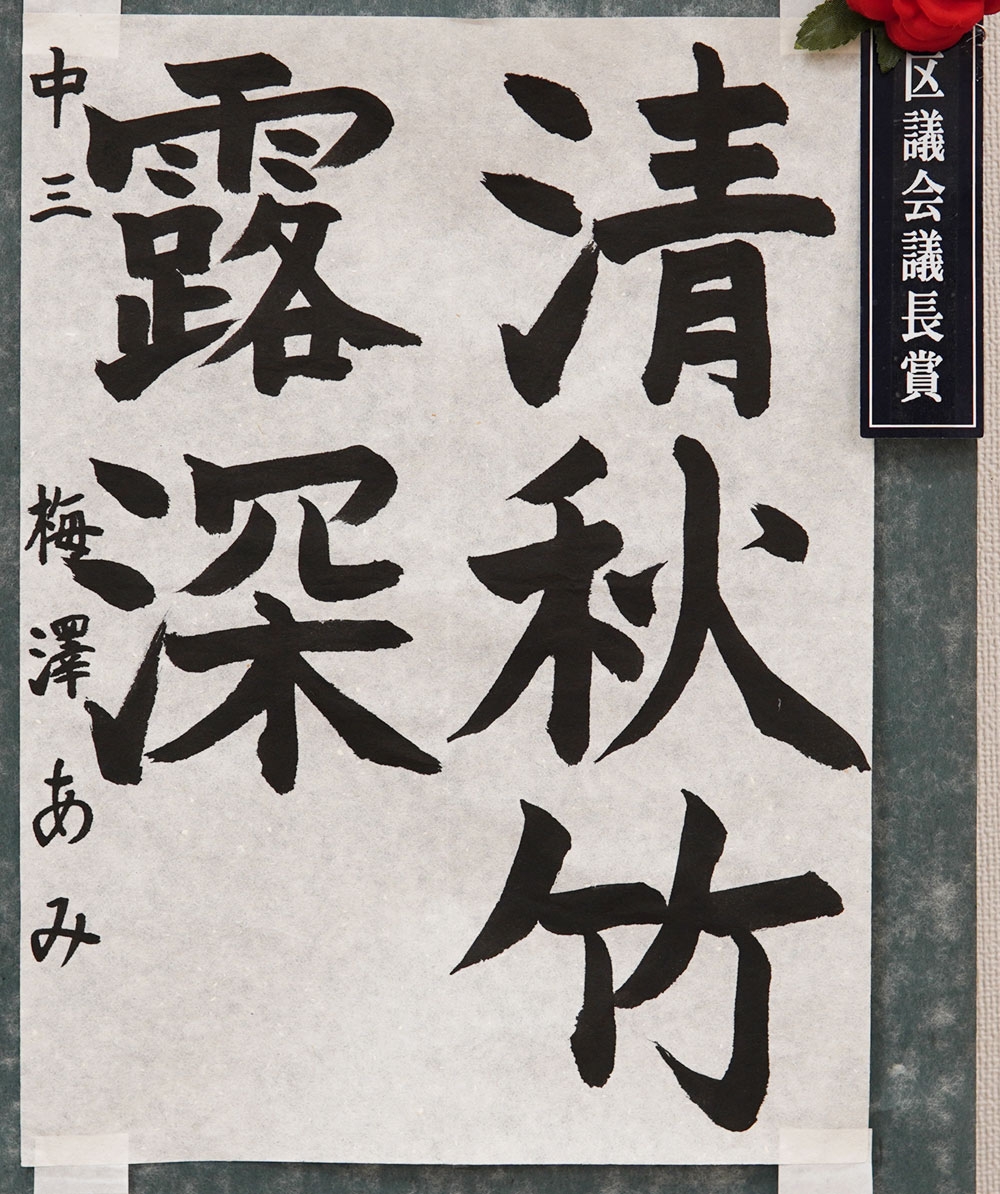 区議会議長賞
清秋竹
露深
中三 梅澤あみ